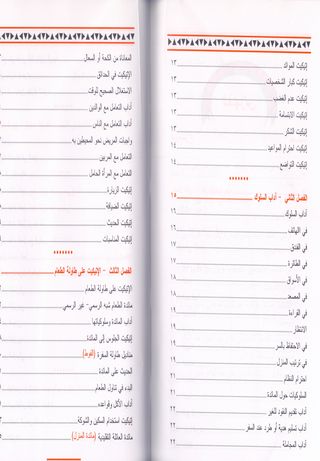 إتيكيت الموائد ١٣
إتيكيت كبار الشخصيات ١٣
إتيكيت عدم الغضب ١٣
إتيكيت الابتسامة ١٤
إتيكيت الشكر ١٤
إتيكيت احترام المواعيد ١٤
إتيكيت التواضع ١٤
*******
الفصل الثاني - آداب السلوك ١٥
آداب السلوك ١٦
في الهاتف ١٦
في الفندق ١٧
في الطائرة ١٧
في الأسواق ١٨
في المصعد ١٨
في القراءة ١٩
الانتظار ١٩
في الاحتفاظ بالسر ١٩
في ترتيب المنزل ٢١
احترام النظام ٢١
السلوكيات حول المائدة ٢١
آداب تقديم النقود للغير ٢٢
آداب تسليم هدية أو طرد عند السفر ٢٢
آداب المجاملة ٢٢
المعاناة من الكحة أو السعال
الإتيكيت في الحدائق
الاستغلال الصحيح للوقت
آداب التعامل مع الوالدين
آداب التعامل مع الناس
واجبات المريض نحو المحيطين به
التعامل مع المربين
التعامل مع المرأة الحامل
إتيكيت الزيارة
إتيكيت الضيافة
إتيكيت الحديث
إتيكيت المناسبات
*******
الفصل الثالث - الإتيكيت على طاولة الطعام
الإتيكيت على طاولة الطعام
مائدة الطعام شبه الرسمي - غير الرسمي
آداب المائدة وسلوكياتها
إتيكيت الجلوس إلى المائدة
مناديل طاولة السفرة (الفوط)
الحديث على المائدة
البدء في تناول الطعام
آداب الأكل وقواعده
إتيكيت استخدام السكين والشوكة
مائدة العائلة التقليدية (مائدة المنزل)